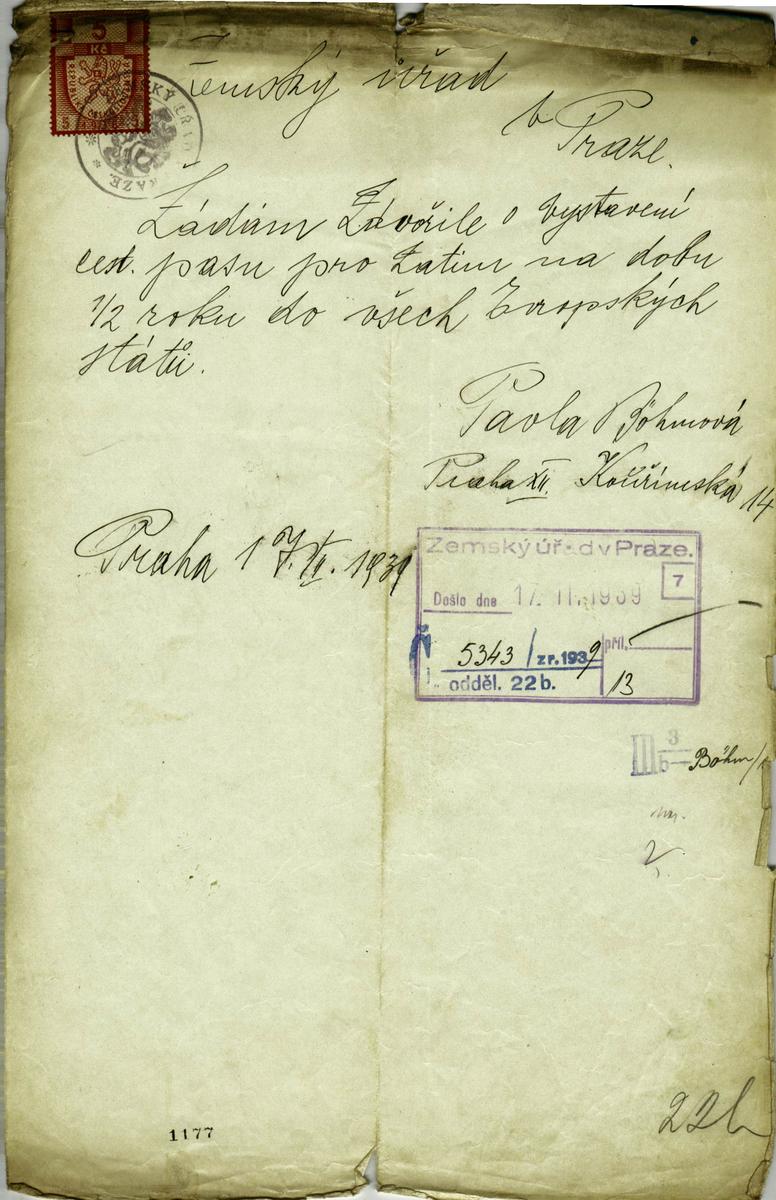 5
Kč
Zemský úřad
v Praze.
Žádám Zdvořile o vystavení
cest. pasu pro Latim na dobu
1/2 roku do všech Evropských
států.
Pavla Böhmová
Praha XII. Kouřimská 14
Praha 17. II. 1939
Zemský úřad v Praze.
7
Došlo dne 17. II. 1939
Č 5343 / z r. 1939 příl.
odděl. 22 b. 13
III 3/b - Böhm/
22b
1177